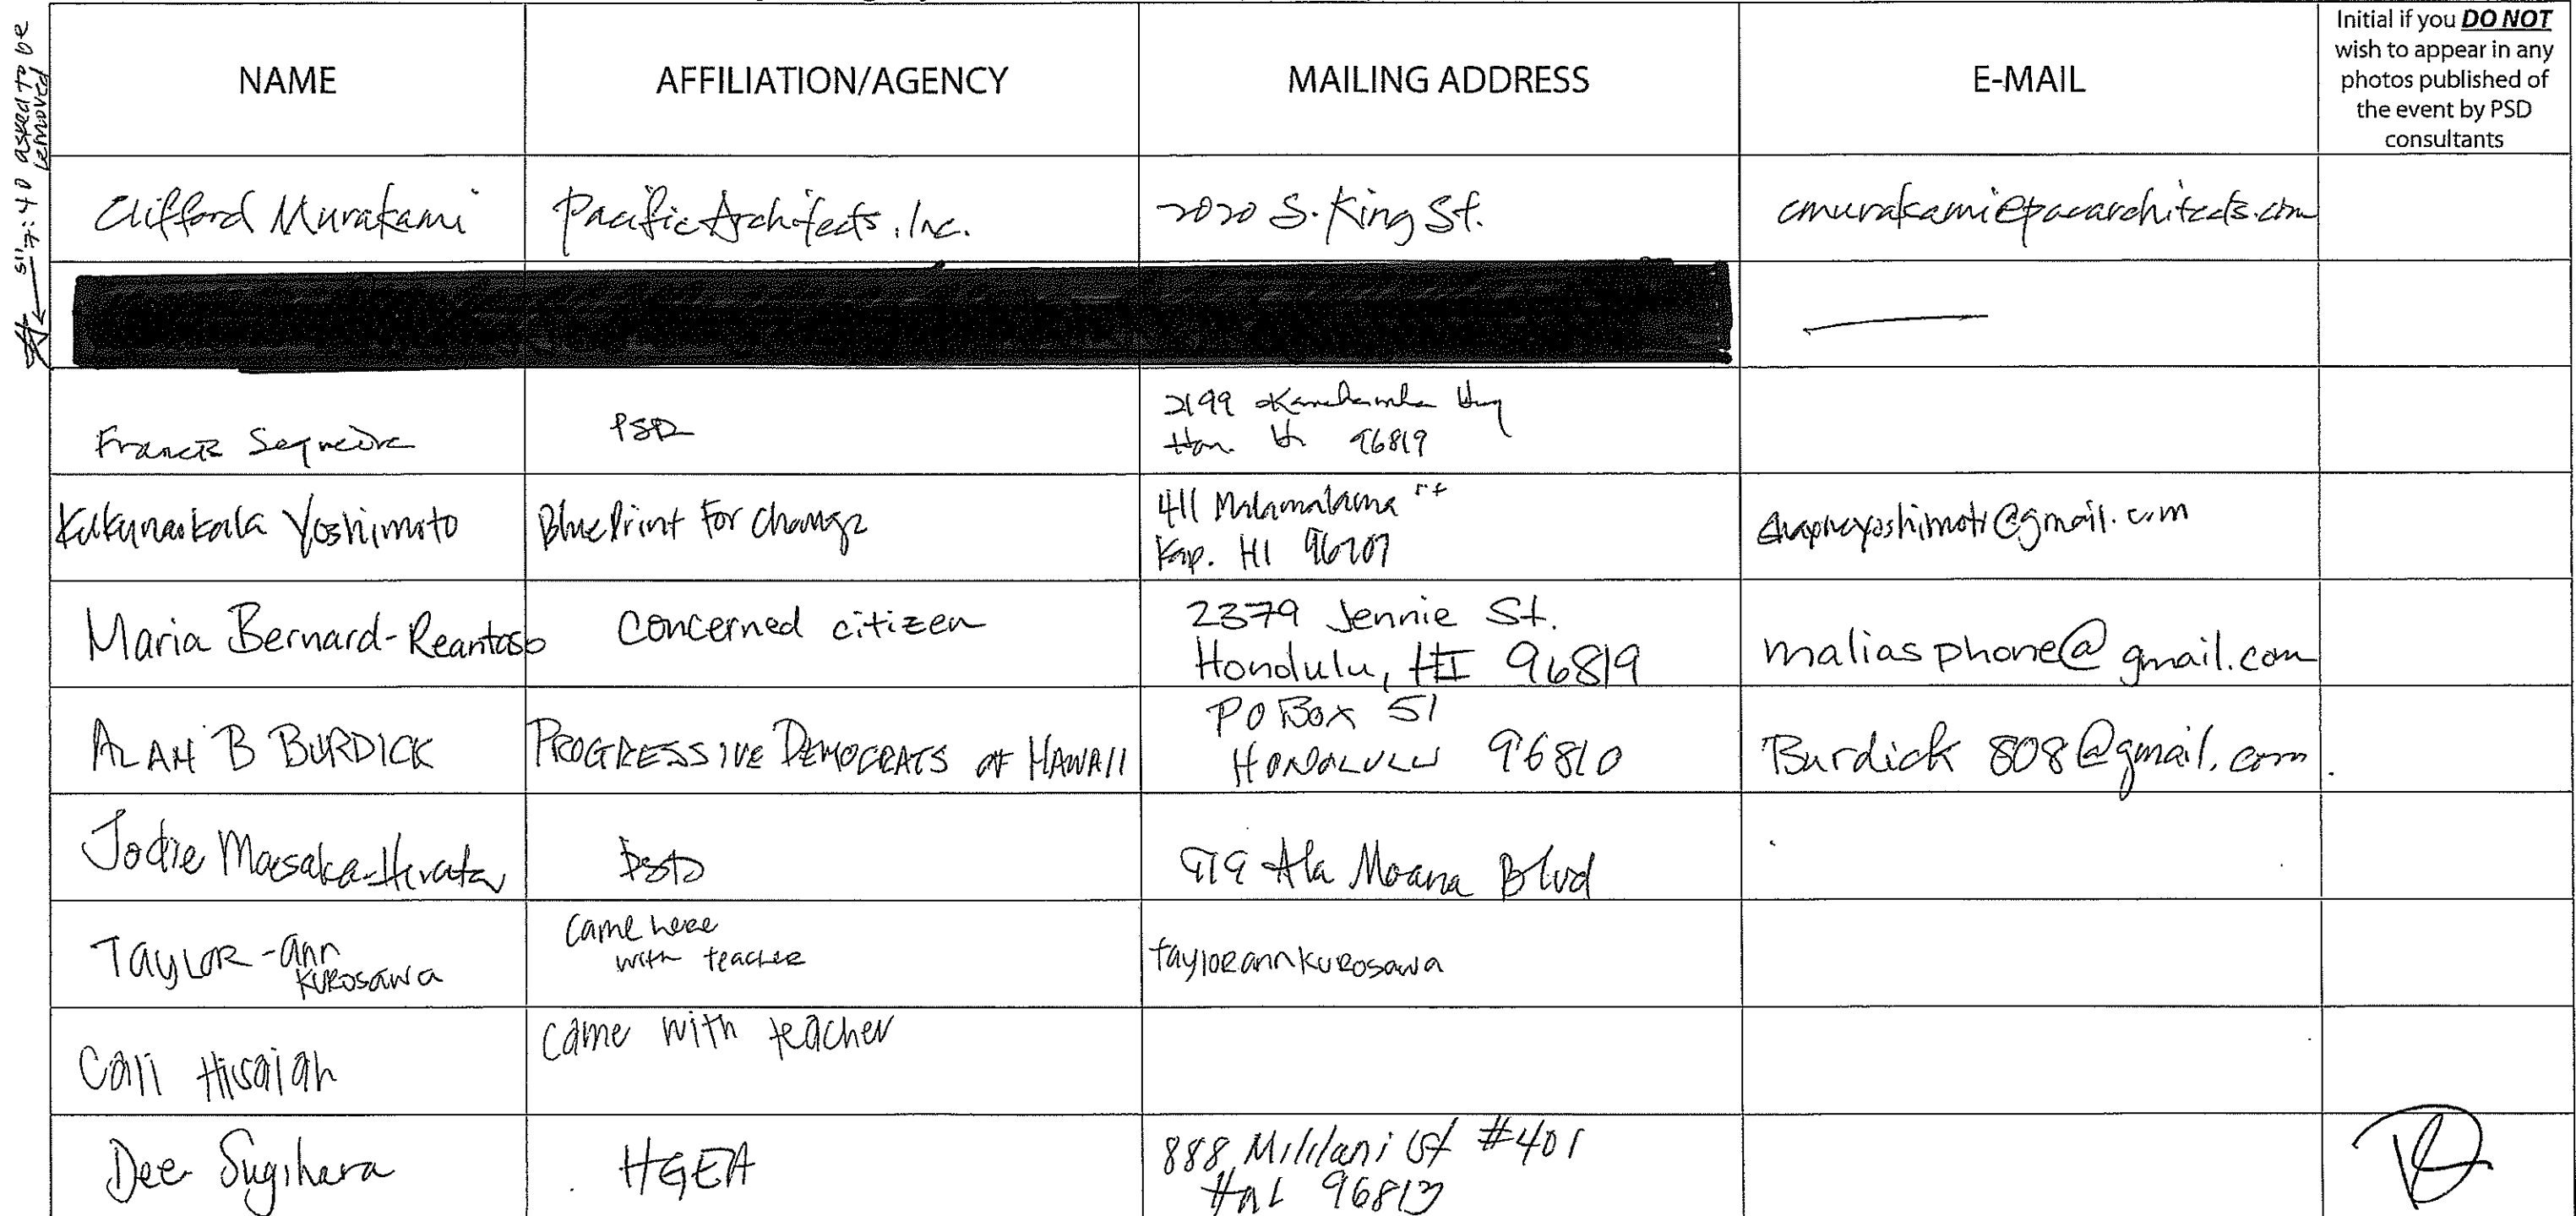 asked to be
removed
NAME
AFFILIATION/AGENCY
MAILING ADDRESS
E-MAIL
Initial if you DO NOT
wish to appear in any
photos published of
the event by PSD
consultants
Clifford Murakami
Pacific Architects, Inc.
2020 S. King St.
cmurakami@pacarchitects.com
Francis Sequeira
PSD
2199 Kamehameha Hwy
Hon. Hi 96819
Yoshimoto
Blueprint For Change
411 Malamalama St
Kap. HI 96707
@gmail.com
Maria Bernard-Reantaso
Concerned citizen
2379 Jennie St.
Honolulu, HI 96819
maliasphone@gmail.com
ALAN B BURDICK
PROGRESSIVE DEMOCRATS OF HAWAII
PO Box 51
HONOLULU 96810
Burdick 808@gmail.com.
Jodie Maesaka-Hirata
PSD
919 Ala Moana Blvd
TAYLOR-ann
KUROSAWA
Came here
with teacher
taylorannkurosawa
Cali Hisaiah
came with teacher
Dee Sugihara
HGEA
888 Mililani St #401
Hnl 96813